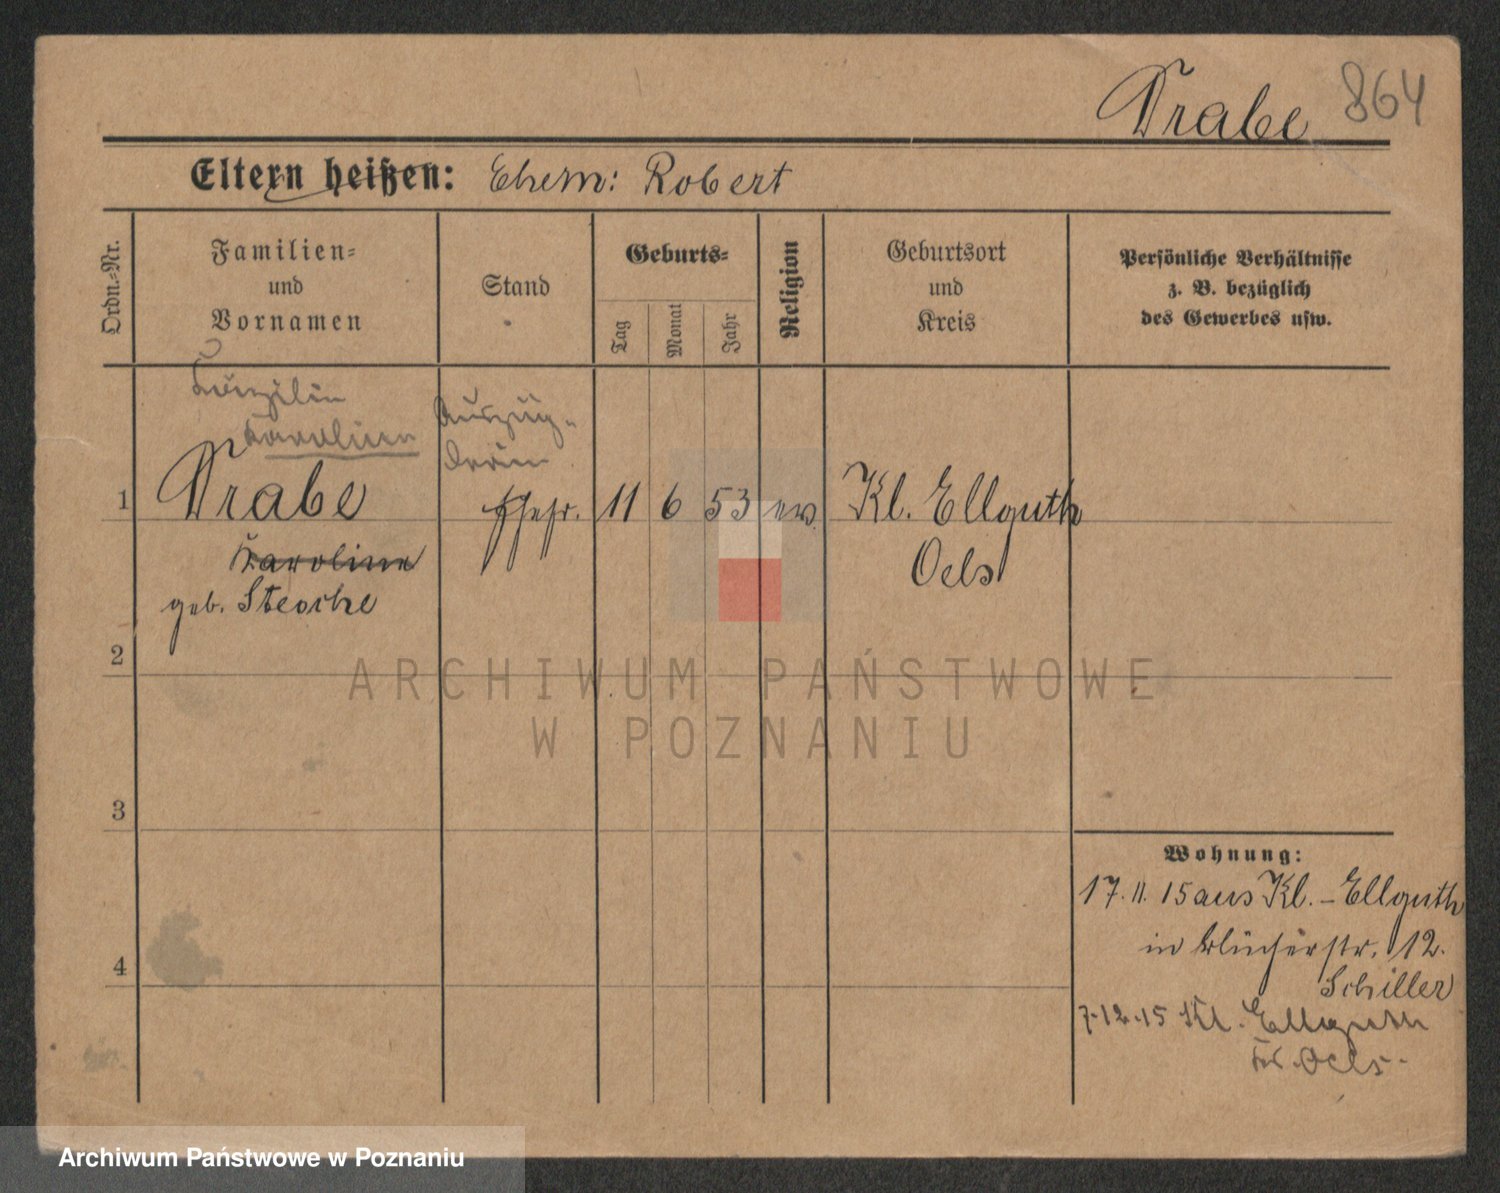 Drabe 864
Eltern heißen: Ehem: Robert
Ordn.-Nr.
Familien-
und
Vornamen
Stand
Geburts-
Tag
Monat
Jahr
Religion
Geburtsort
und
Kreis
Persönliche Verhältnisse
z. B. bezüglich
des Gewerbes usw.
Karoline
Auszüg-
lerin
1 Drabe Ehefr. 11 6 53 ev. Kl. Ellguth
Karoline Oels
geb.
2
3
4
Wohnung:
17. 11. 15 aus Kl. - Ellguth
in Blücherstr. 12.
Schiller
7.12.15 Kl. Ellguth
Kr. Oels.
ARCHIWUM PAŃSTWOWE
W POZNANIU
Archiwum Państwowe w Poznaniu